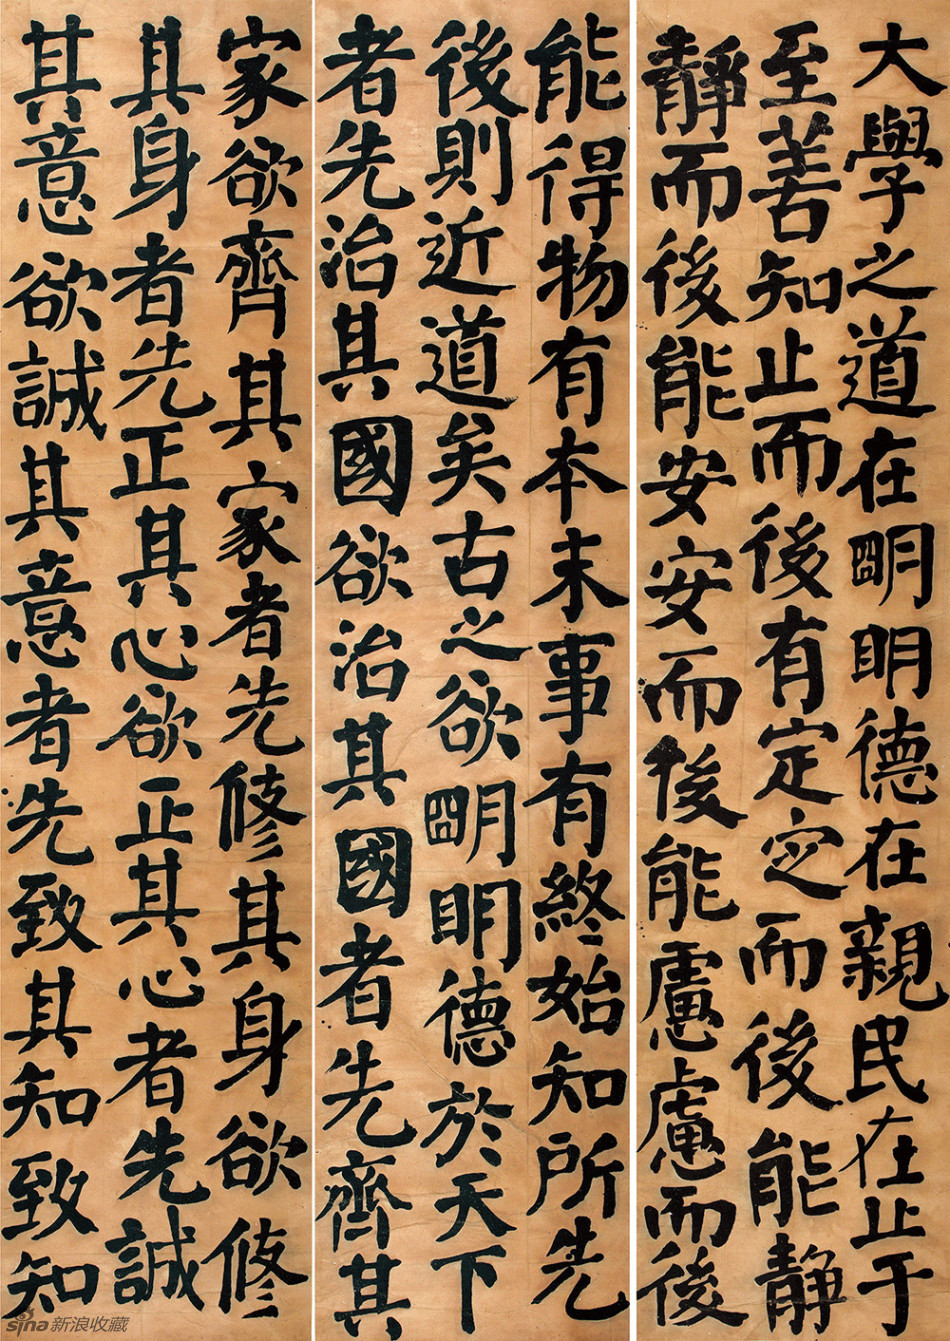 大學之道在朙明德在親民在止于
至善知止而後有定定而後能静
靜而後能安安而後能慮慮而後
能得物有本末事有終始知所先
後則近道矣古之欲朙明德於天下
者先治其國欲治其國者先齊其
家欲齊其家者先修其身欲修
其身者先正其心欲正其心者先誠
其意欲誠其意者先致其知致知
sina 新浪收藏